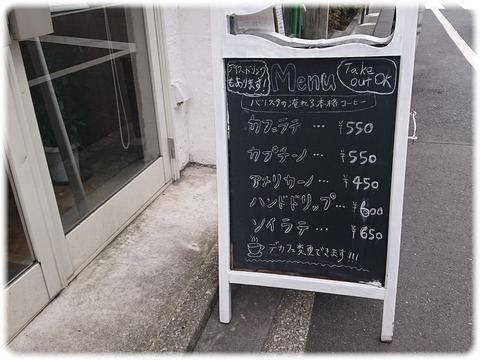 アイスドリンク
もあります!
Menu
Take
out OK
バリスタの淹れる本格コーヒー
カフェラテ … ¥550
カプチーノ … ¥550
アメリカーノ … ¥450
ハンドドリップ… ¥600
ソイラテ … ¥650
デカフェ変更できます!!!